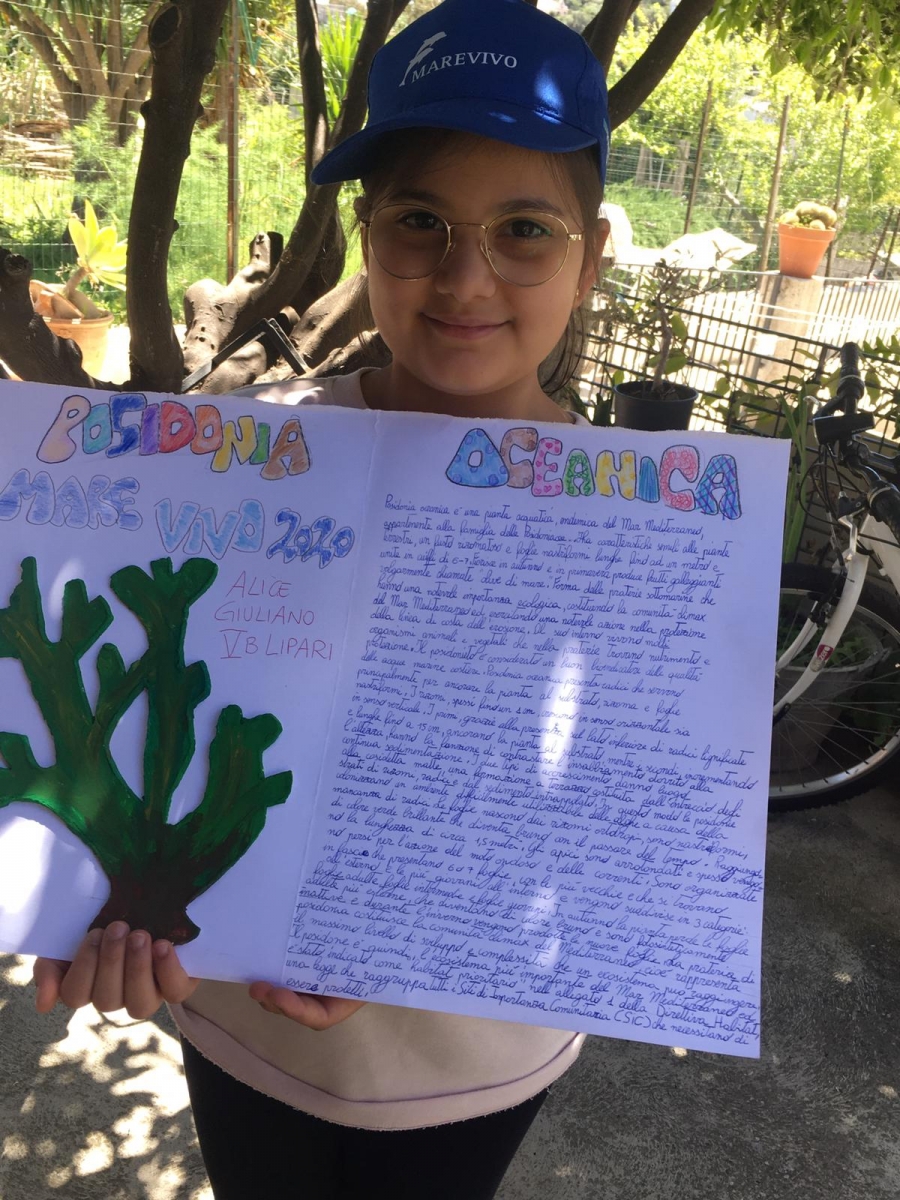 MAREVIVO
POSIDONIA
MARE VIVO 2020
ALICE
GIULIANO
VB LIPARI
OCEANICA
Posidonia oceanica e' una pianta acquatica, endemica del Mar Mediterraneo,
appartenente alla famiglia delle Posidonacee. Ha caratteristiche simili alle piante
terrestri, un fusto rizomatoso e foglie nastriformi lunghe fino ad un metro e
unite in ciuffi di 6-7. Fiorisce in autunno e in primavera produce frutti galleggianti
volgarmente chiamate olive di mare. Forma delle praterie sottomarine che
hanno una notevole importanza ecologica, costituendo la comunità climax
del Mar Mediterraneo ed esercitando una notevole azione nella protezione
della linea di costa dall'erosione. Al suo interno vivono molti
organismi animali e vegetali che nella prateria trovano nutrimento e
protezione. Il posidonieto è considerato un buon bioindicatore della qualità
delle acque marine costiere. Posidonia oceanica presenta radici che servono
principalmente per ancorare la pianta al substrato, rizoma e foglie
nastriformi. I rizomi, spessi fino ad 1 cm crescono in senso orizzontale sia
in senso verticale. I primi, grazie alla presenza sul lato inferiore di radici lignificate
e lunghe fino a 15 cm, ancorano la pianta al substrato mentre i secondi, incrementando
l'altezza, hanno la funzione di contrastare l'insabbiamento dovuto alla
continua sedimentazione. I due tipi di accrescimento danno luogo
alla cosidetta matte, una formazione a terrazzo costituita dall'intreccio degli
strati di rizomi, radici e dal sedimento intrappolato. In questo modo le posidonie
in ambiente difficilmente utilizzabile dalle alghe a causa della
mancanza di radici. Le foglie nascono dai rizomi ortotropi, sono nastriformi,
di colore verde brillante che diventa bruno con il passare del tempo. Raggiungono
la lunghezza di circa 1,5 metri. Gli apici sono arrotondati e spesso vengono
persi per l'azione del moto ondoso e delle correnti. Sono organizzate
in fasci che presentano 6 o 7 foglie, con le più vecchie e che si trovano
all'esterno e le più giovani all'interno e vengono suddivise in 3 categorie:
foglie adulte, foglie intermedie e foglie giovani. In autunno la pianta perde le foglie
adulte più esterne, che diventano di colore bruno e sono fotosinteticamente
inattive e durante l'inverno vengono prodotte le nuove foglie. La prateria di
posidonia costituisce la comunità climax del Mediterraneo, cioè rappresenta
il massimo livello di sviluppo e complessità che un ecosistema può raggiungere.
Il posidonieto e' quindi, l'ecosistema più importante del Mar Mediterraneo ed
è stato indicato come habitat prioritario nell'allegato 1 della Direttiva Habitat,
una legge che raggruppa tutti i Siti di Importanza Comunitaria (SIC) che necessitano di
essere protetti.